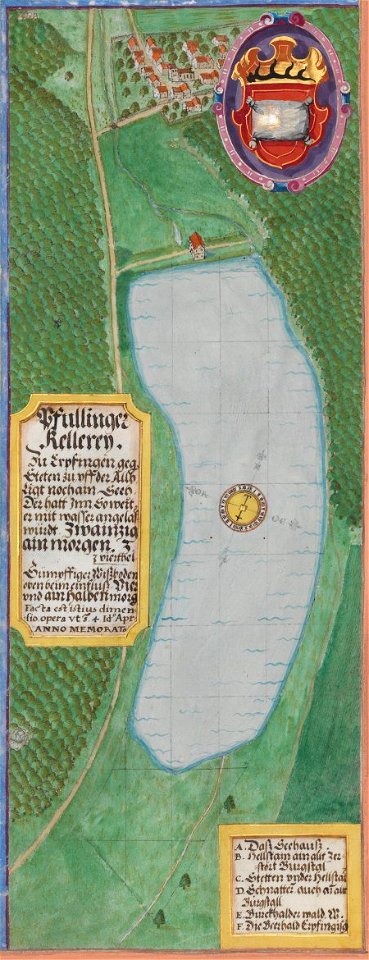 Pfullinger
Kellerey.
Zu Erpfingen geg
Stetten zu vff der Alb
Ligt nochain Seeh
Der hatt Inn So weitt
er mit wasser angelaß
würdt. Zwaintzig
ain morgen, 3
3 viertheil
Sumpffiger Wißboden
oben beim einfluß Vier
vnd ain halben morg
Facta est istius dimen
sio opera vts 4 Id⁹ Apr
ANNO MEMORATO
A. Daß Seehauß.
B. Hellstain ain alt Zer-
stört Burgstal
C. Stetten vnder Hellstai
D. Schnatter auch ain alt
Burgstall
E. Burckhalder wald. W.
F. Die Beerhald Erpfingisch